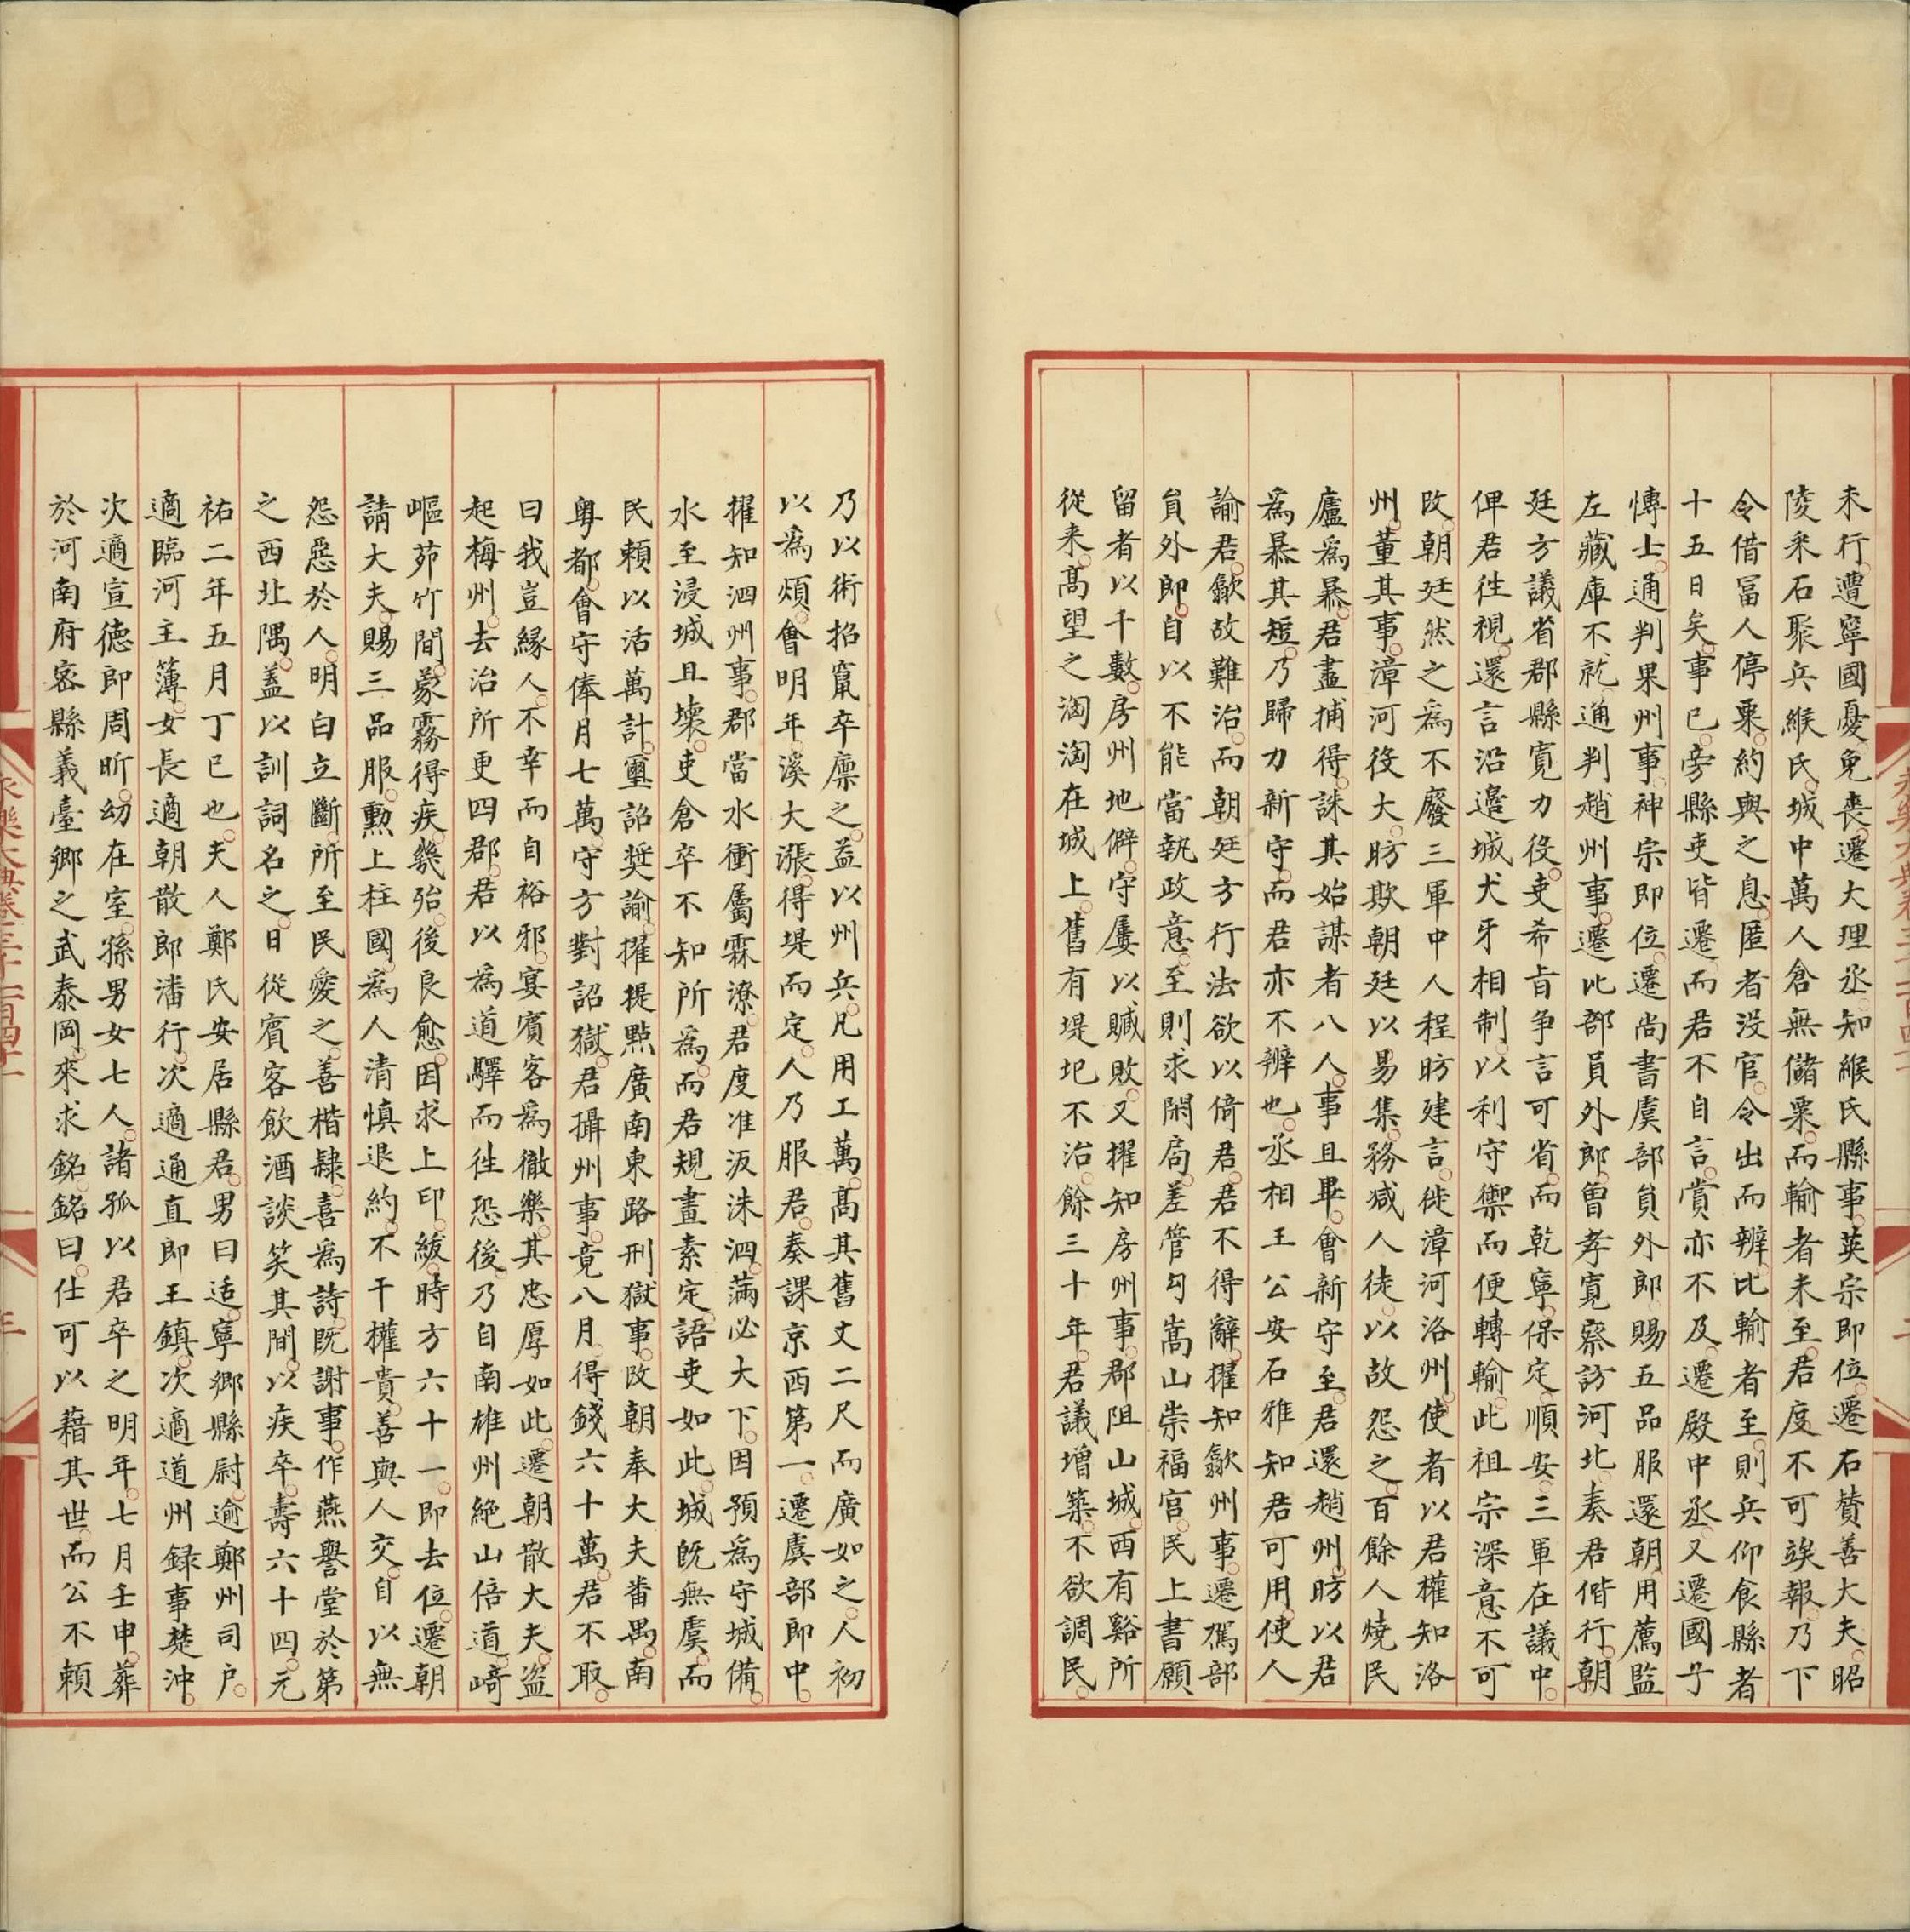 未行遭寧國憂免喪遷大理丞知緱氏縣事英宗即位遷右贊善大夫昭
陵采石聚兵緱氏城中萬人倉無儲粟而輸者未至君度不可竢報乃下
令借冨人停粟約與之息匿者没官令出而辨比輸者至則兵仰食縣者
十五日矣事已旁縣吏皆遷而君不自言賞亦不及遷殿中丞又遷國子
慱士通判果州事神宗即位遷尚書虞部貟外郎賜五品服還朝用薦監
左藏庫不就通判趙州事遷比部員外郎曽孝寛察訪河北奏君偕行朝
廷方議省郡縣寛力役吏希㫖争言可省而乾寧保定順安三軍在議中
俾君徃視還言沿邉城犬牙相制以利守禦而便轉輸此祖宗深意不可
改朝廷然之為不廢三軍中人程昉建言徙漳河洛州使者以君權知洛
州董其事漳河役大昉欺朝廷以易集務减人徒以故怨之百餘人燒民
廬為暴君畫捕得誅其始謀者八人事且畢會新守至君還趙州昉以君
為暴其短乃歸力新守而君亦不辨也丞相王公安石雅知君可用使人
諭君歙故難治而朝廷方行法欲以倚君君不得辭擢知歙州事遷駕部
貟外郎自以不能當執政意至則求閑局差管勾嵩山崇福宫民上書願
留者以千數房州地僻守屢以贓敗又擢知房州事郡阻山城西有谿所
從来髙望之淘淘在城上舊有堤圯不治餘三十年君議增築不欲調民
乃以術招竄卒廪之益以州兵凡用工萬髙其舊丈二尺而廣如之人初
以為煩會明年溪大漲得堤而定人乃服君奏課京西第一遷虞部郎中
擢知泗州事郡當水衝屬霖潦君度淮汳洙泗滿必大下因預為守城備
水至浸城且壊吏倉卒不知所為而君規畫素定語吏如此城既無虞而
民賴以活萬計璽詔奨諭擢提㸃廣南東路刑獄事改朝奉大夫畨禺南
粤都會守俸月七萬守方對詔獄君攝州事竟八月得錢六十萬君不取
曰我豈縁人不幸而自裕邪宴賓客為徹樂其忠厚如此遷朝散大夫盗
起梅州去治所更四郡君以為道驛而徃恐後乃自南雄州絶山倍道﨑
嶇茆竹間蒙霧得疾幾殆後良愈因求上印紱時方六十一即去位遷朝
請大夫賜三品服勲上柱國為人清慎退約不干權貴善與人交自以無
怨惡於人明白立斷所至民愛之善楷隷喜為詩既謝事作燕譽堂於第
之西北隅盖以訓詞名之日從賓客飲酒談笑其間以疾卒壽六十四元
祐二年五月丁巳也夫人鄭氏安居縣君男曰适寧鄉縣尉逾鄭州司户
適臨河主簿女長適朝散郎潘行次適通直郎王鎮次適道州録事楚沖
次適宣徳郎周昕幼在室孫男女七人諸孤以君卒之明年七月壬申葬
於河南府宻縣義臺鄉之武泰岡來求銘銘曰仕可以藉其世而公不頼